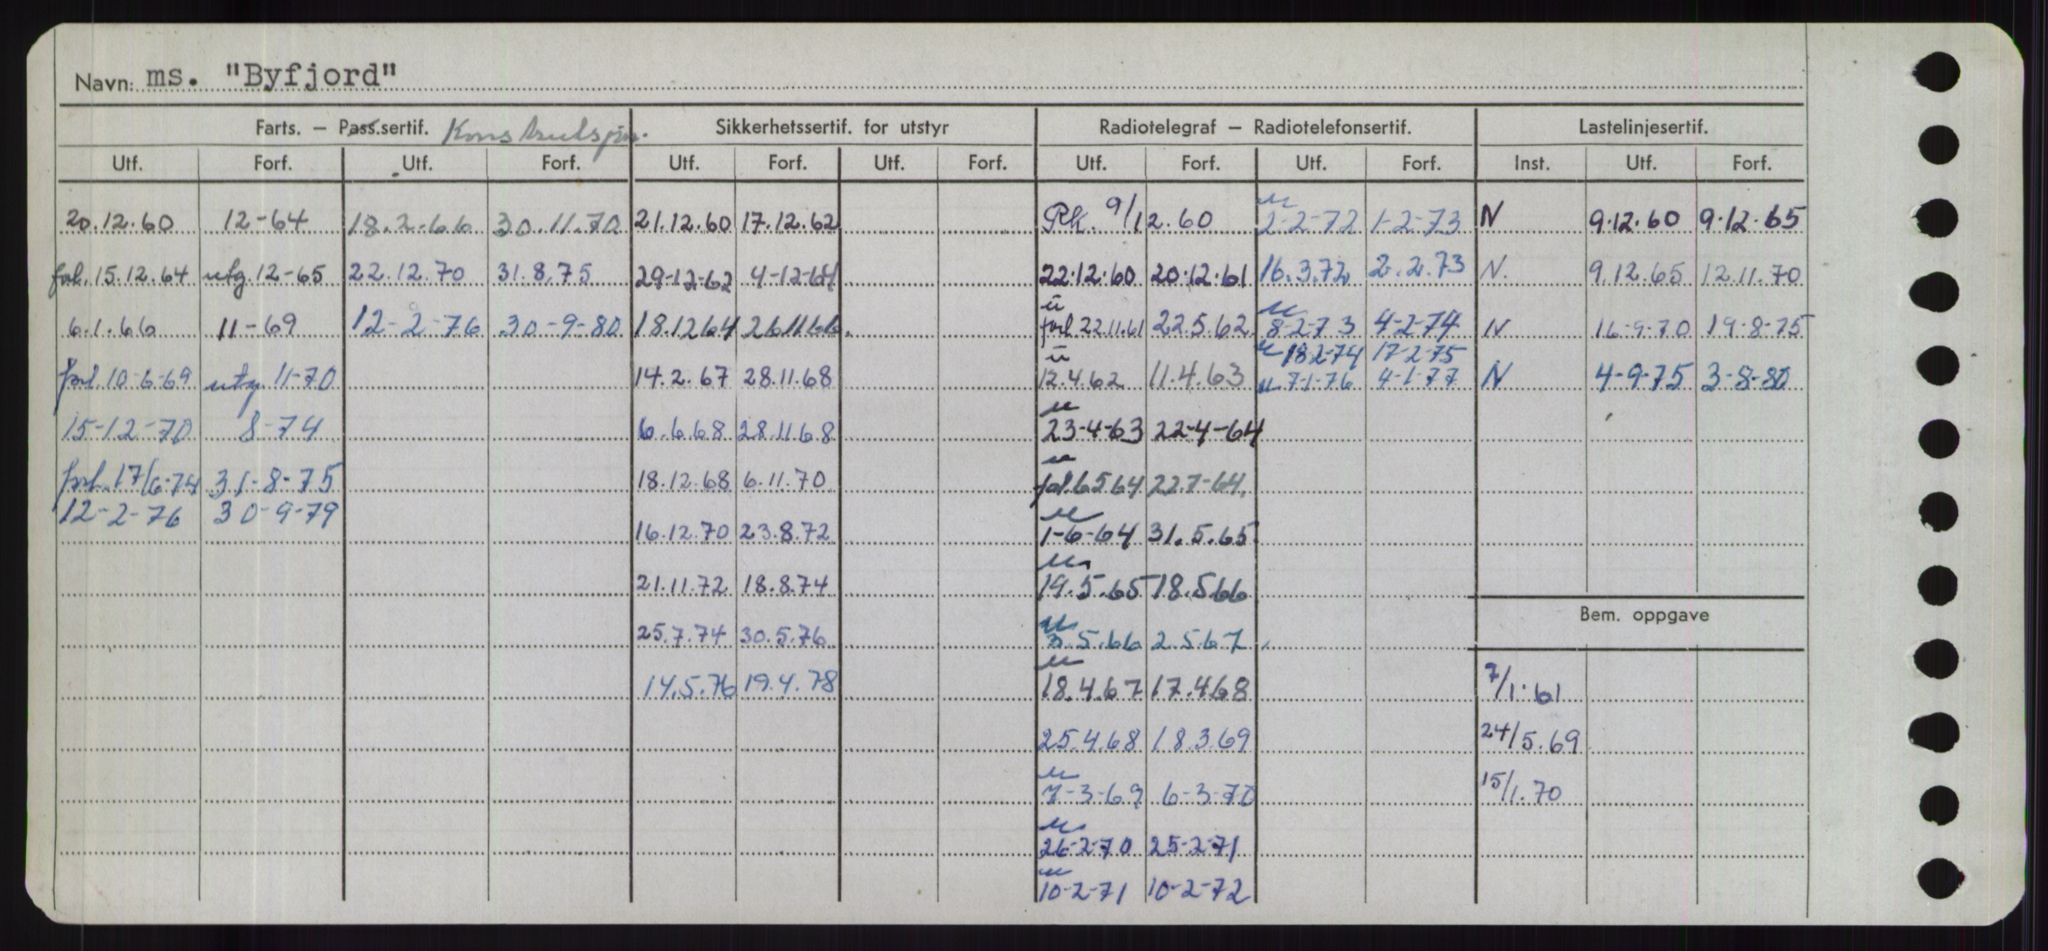 Navn: ms. "Byfjord"
Farts. – Pass.sertif. Sikkerhetssertif. for utstyr Radiotelegraf – Radiotelefonsertif. Lastelinjesertif.
Utf. Forf. Utf. Forf. Utf. Forf. Utf. Forf. Utf. Forf. Utf. Forf. Inst. Utf. Forf.
20.12.60 12-64 18.2.66 30.11.70 21.12.60 17.12.62 Rk. 9/12.60 u 2-2-72 1-2-73 N 9.12.60 9.12.65
forl. 15.12.64 utg. 12-65 22.12.70 31.8.75 29-12-62 4-12-64 22.12.60 20.12.61 16.3.72 2.2.73 N. 9.12.65 12.11.70
6.1.66 11-69 12-2-76 30-9-80 18.12 64 26 11 66. u forl 22.11.61 22.5.62. u 8-2-73 4-2-74 N 16-9-70 19-8-75
u 18 2-74 17-2-75
forl. 10-6-69 utg. 11-70 14.2.67 28.11.68 u 12.4.62 11.4.63 u 7-1-76 4-1-77 N 4-9-75 3-8-80
15-12-70 8-74 6.6.68 28.11 68 u 23-4-63 22-4-64
forl. 17/6-74 31-8-75 18.12.68 6.11.70 u forl. 6 5 64 22.7-64.
12-2-76 30-9-79 16.12.70 23.8.72 u 1-6-64 31.5.65
21.11.72 18.8.74 u 19.5.65 18.5.66
25.7.74 30.5.76 u 3.5.66 2.5.67
Bem. oppgave
14.5.76 19.4.78 u 18.4.67 17.4.68 7/1.61
25.4.68 18.3.69 24/5.69
u 7-3-69 6-3-70 15/1.70
u 26-2-70 25-2-71
u 10-2-71 10-2-72